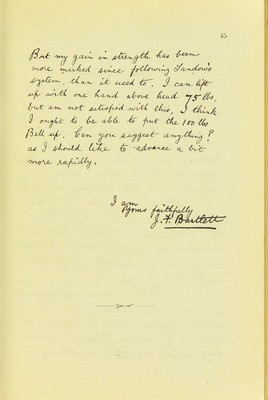 45
But my gain in strength has been
more marked since following Sandow's
system, than it used to. I can lift
up with one hand above head 75 lbs,
but am not satisfied with this, I think
I ought to be able to put the 100 lbs
Bell up. Can you suggest anything?
as I should like to advance a bit
more rapidly.
I am
Yours faithfully
J. F. Bartlett